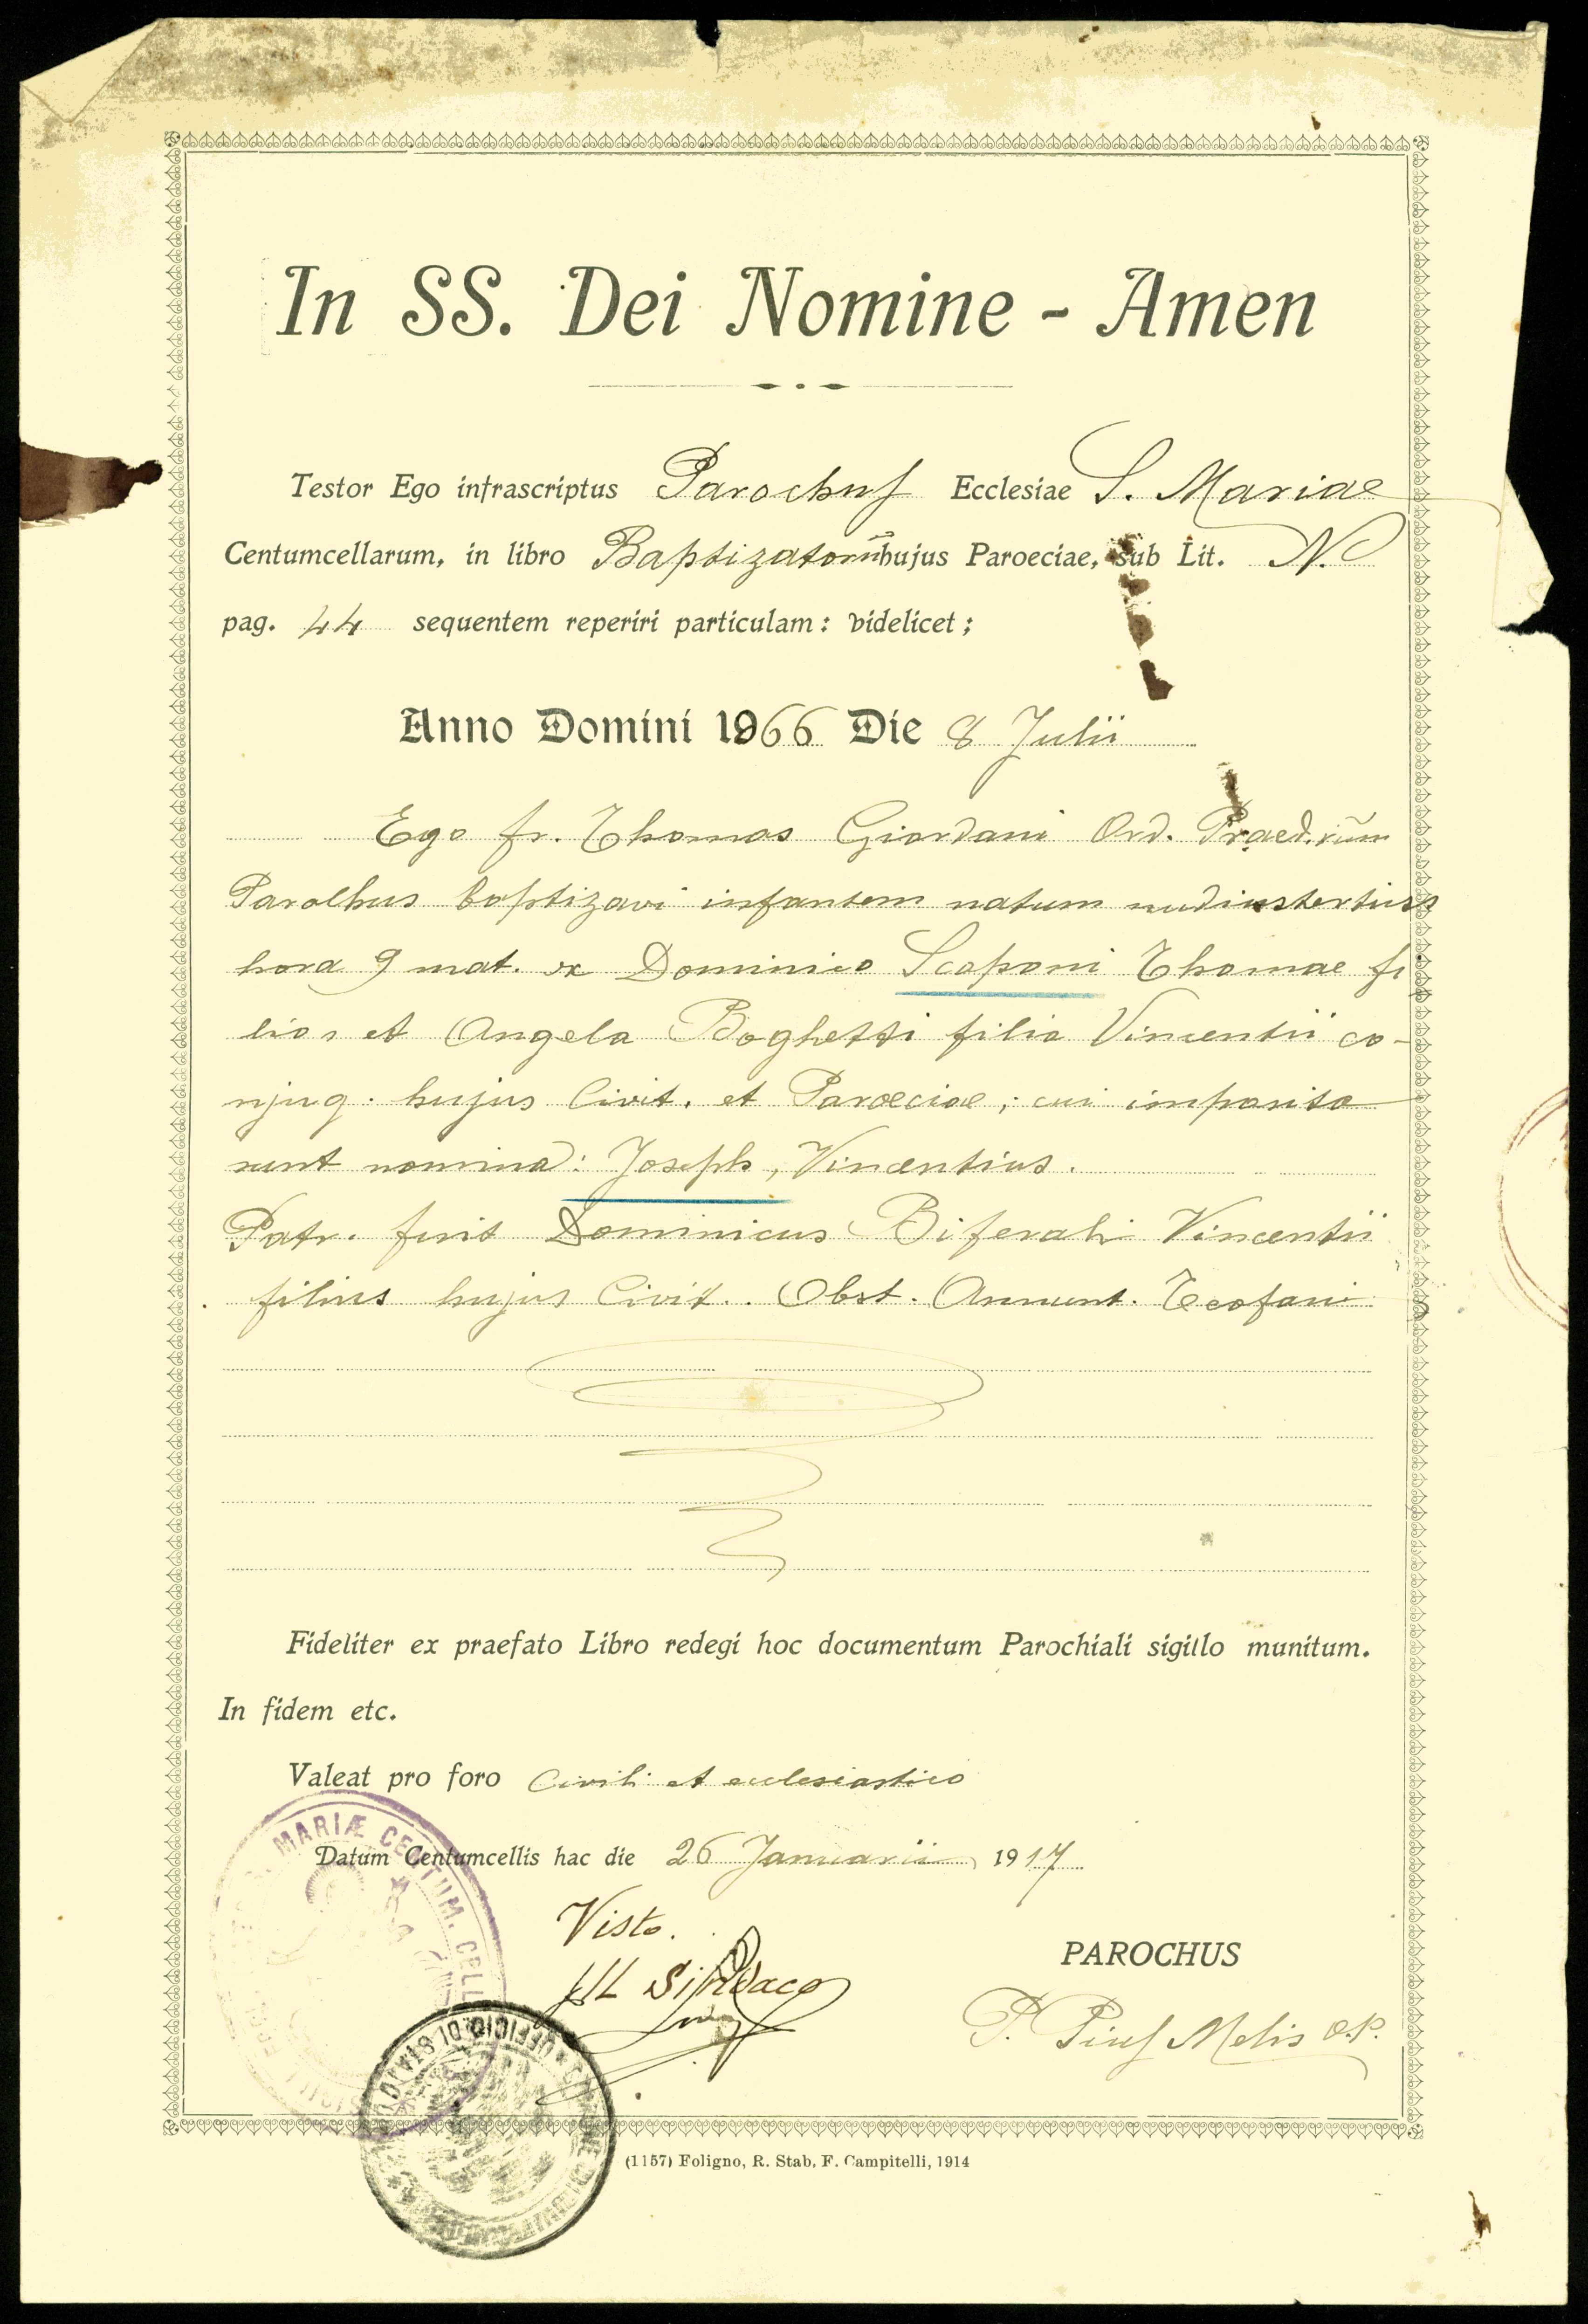 In SS. Dei Nomine - Amen
Testor Ego infrascriptus Parochus Ecclesiae S. Mariae
Centumcellarum, in libro Baptizatorū hujus Paroeciae, sub Lit. N.
pag. 44 sequentem reperiri particulam: videlicet;
Anno Domini 1866 Die 8 Julii
Ego fr. Thomas Giordani Ord. Praed.rūm
Parochus baptizavi infantem natum nudiustertius
hora 9 mat. ex Dominico Scaponi Thomae fi
lio, et Angela Boghetti filia Vincentii co-
njug. hujus Civit. et Paroeciae; cui imposita
sunt nomina: Joseph, Vincentius.
Patr. fuit Dominicus Biferali Vincentii
filius hujus Civit. Obst. Annunt. Teofani
Fideliter ex praefato Libro redegi hoc documentum Parochiali sigillo munitum.
In fidem etc.
Valeat pro foro Civili et ecclesiastico
Datum Centumcellis hac die 26 Januarii 1917
MARIÆ CENTUM. CELL
Visto.
IL SINDACO
PAROCHUS
P. Pius Melis O.P.
UFFICIO DI STATO
(1157) Foligno, R. Stab. F. Campitelli, 1914